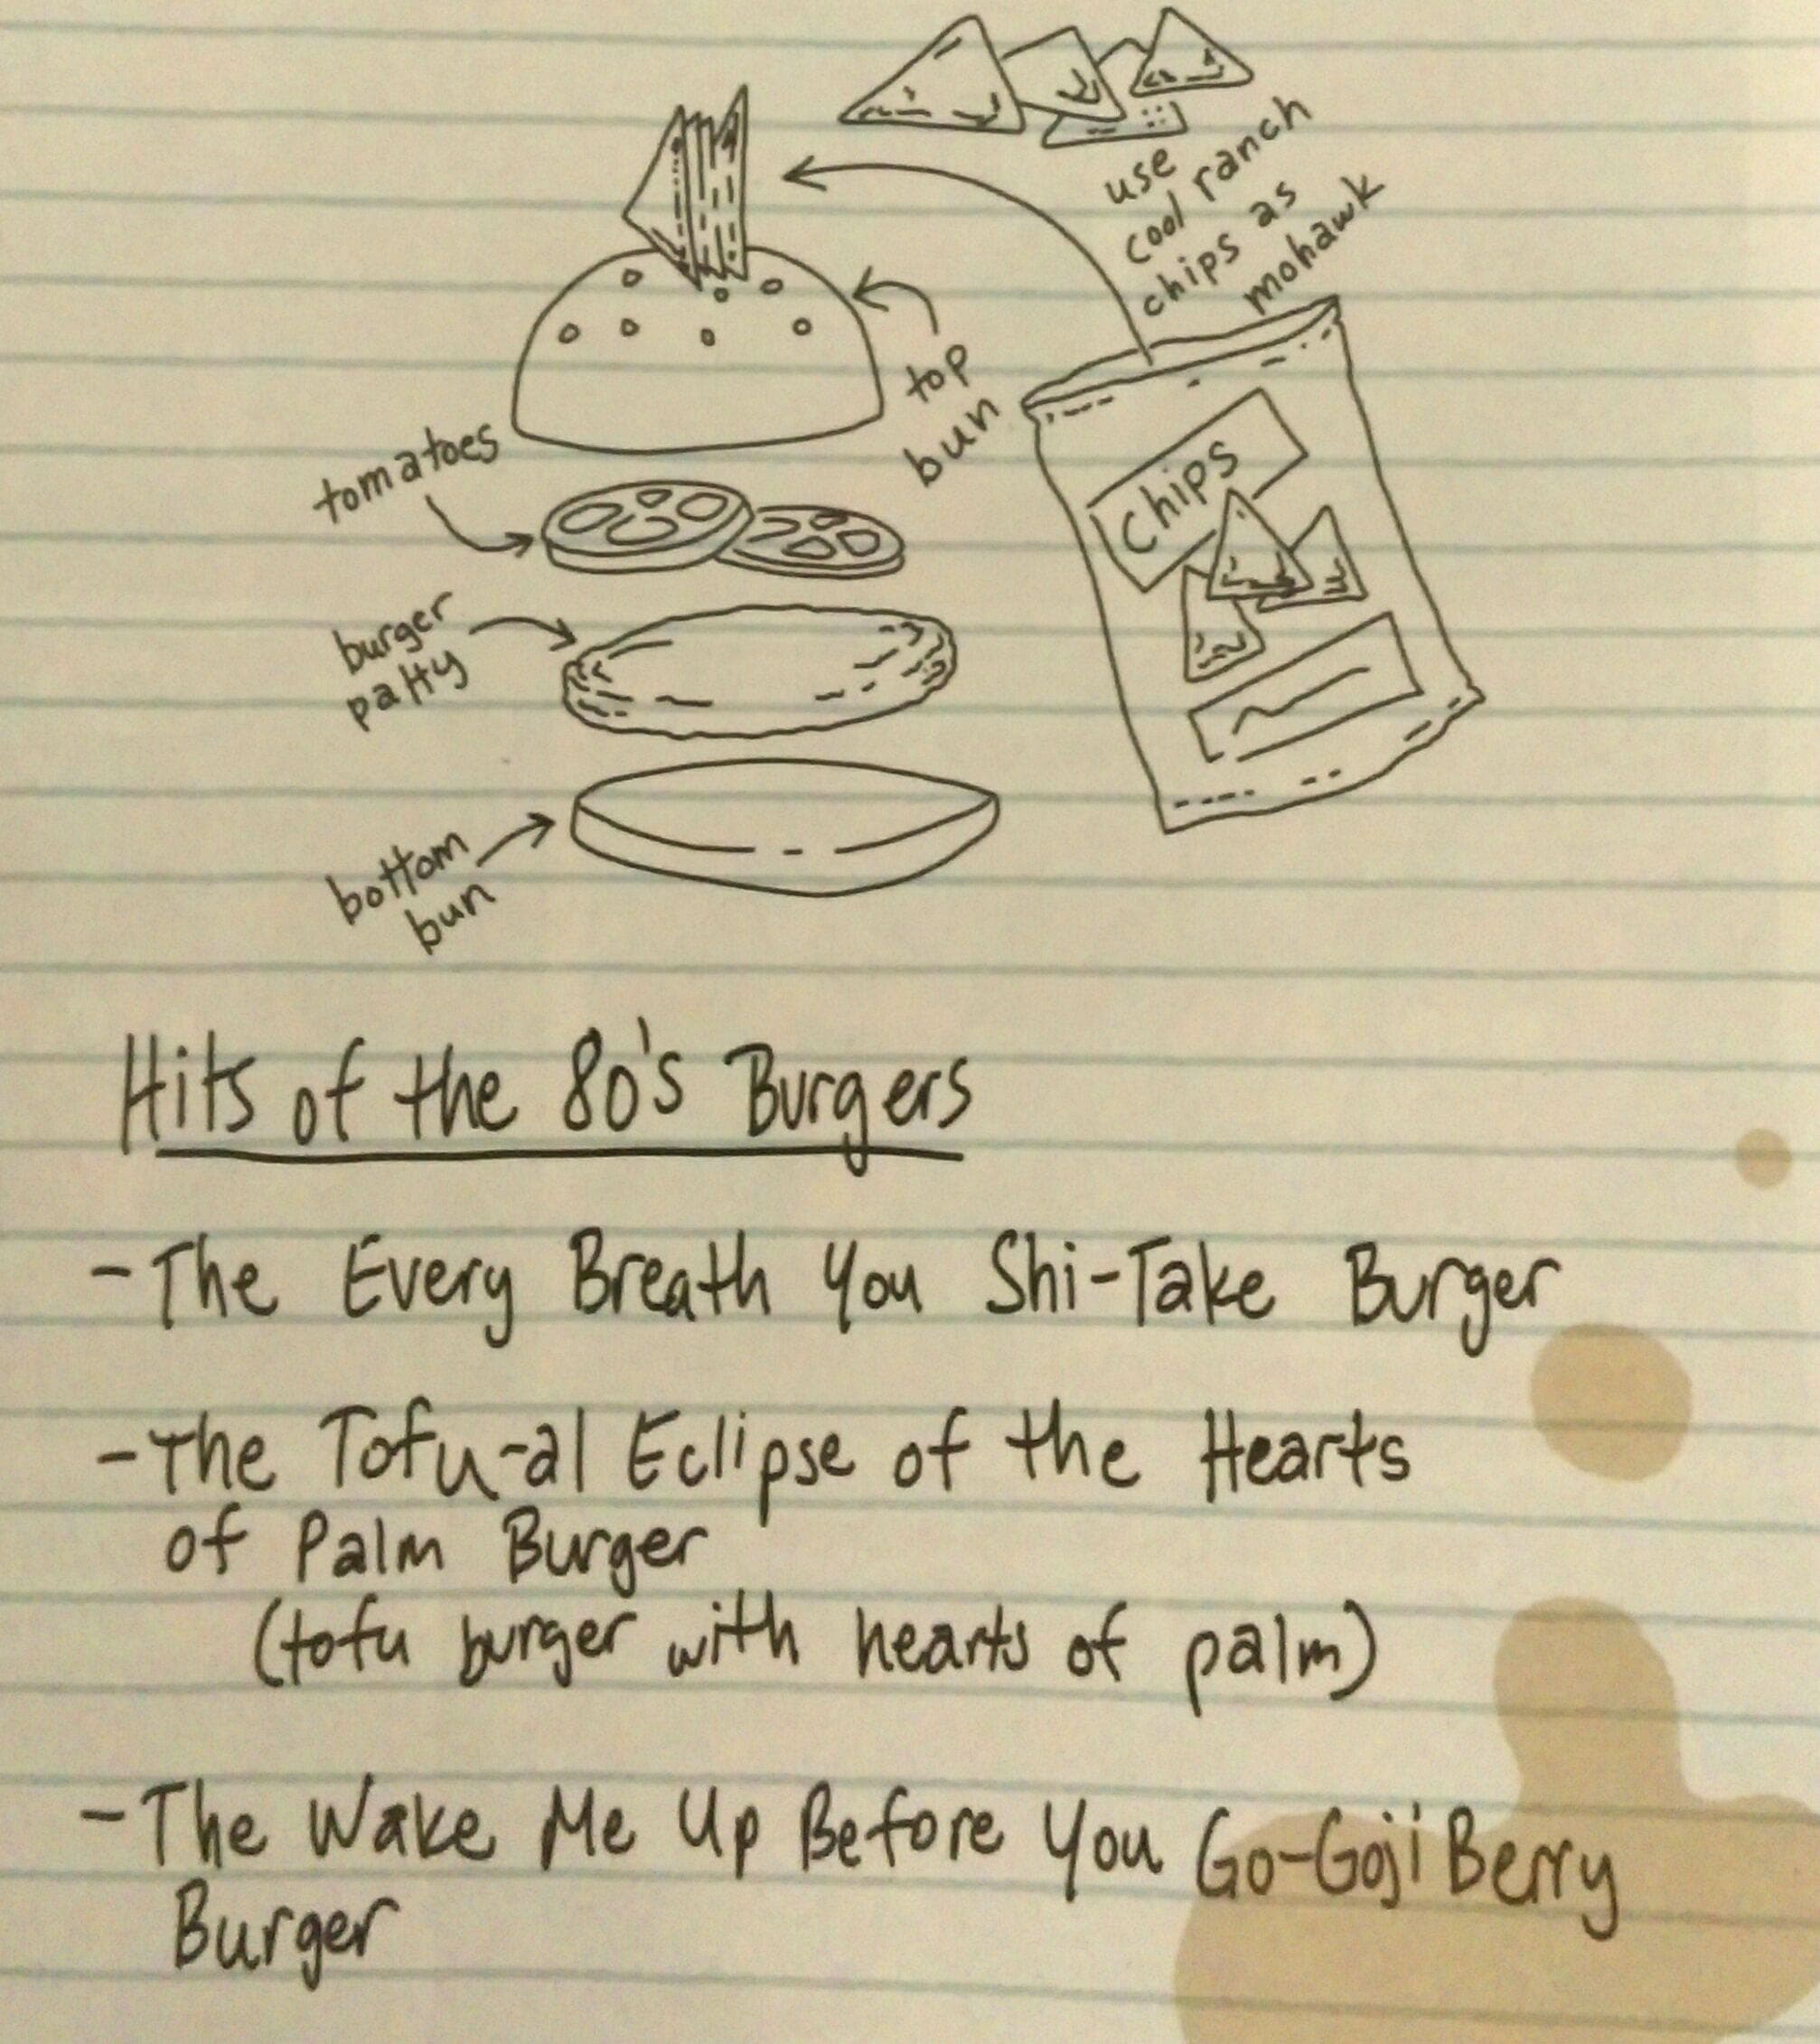 use
cool ranch
chips as
mohawk
top
bun
tomatoes
Chips
burger
patty
bottom
bun
Hits of the 80's Burgers
-The Every Breath You Shi-Take Burger
-The Tofu-al Eclipse of the Hearts
of Palm Burger
(tofu burger with hearts of palm)
-The Wake Me Up Before You Go-Goji Berry
Burger